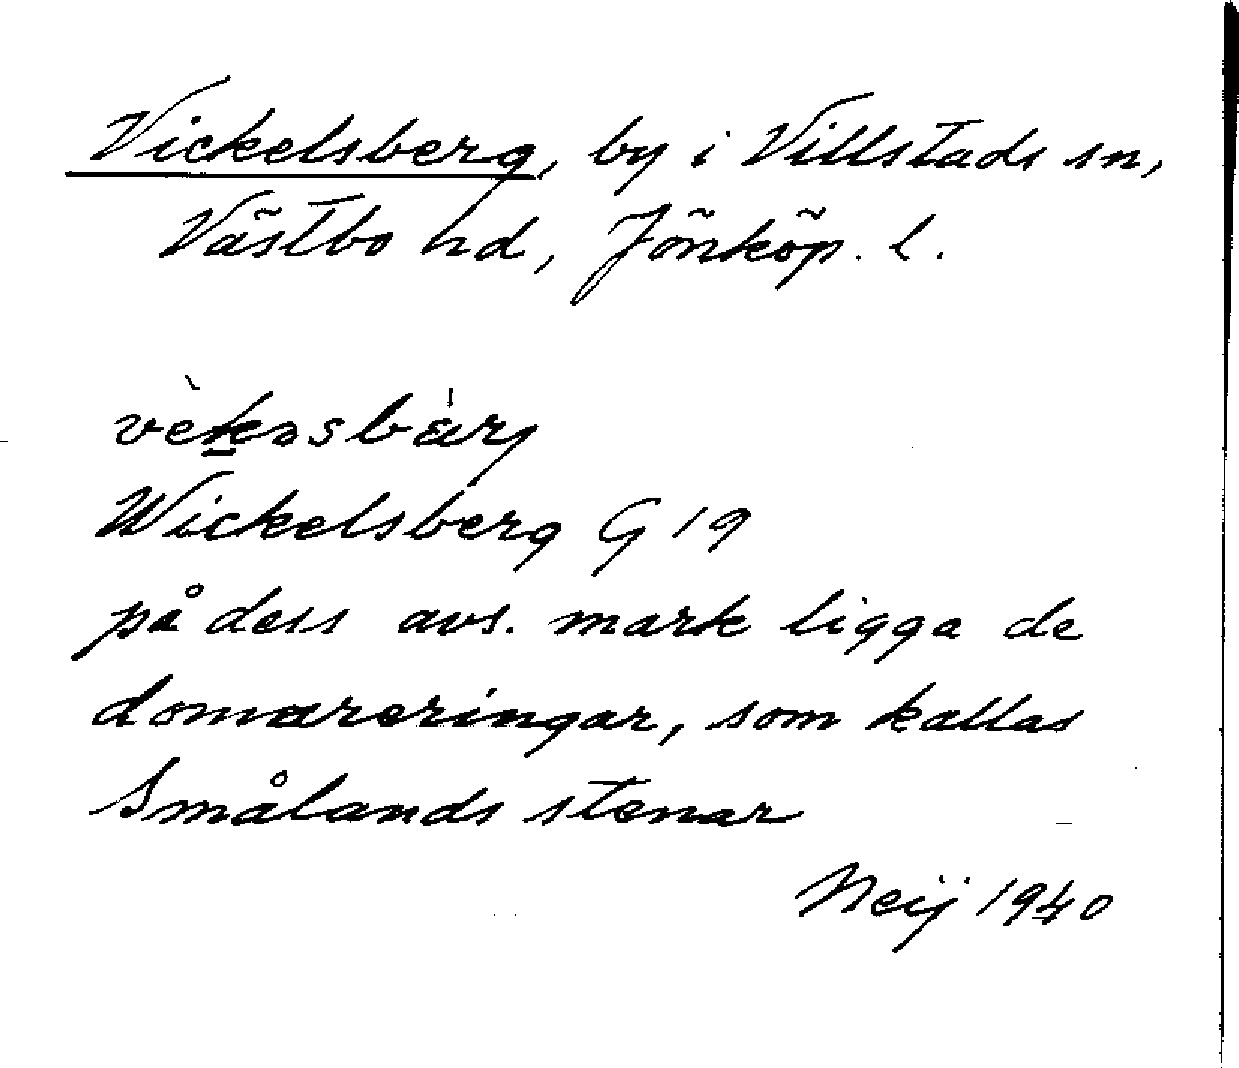 Vickelsberg, by i Villstads sn,
Västbo hd, Jönköp. l.
Wickelsberg G 19
på dess avs. mark ligga de
domareringar, som kallas
Smålands stenar
Neij 1940